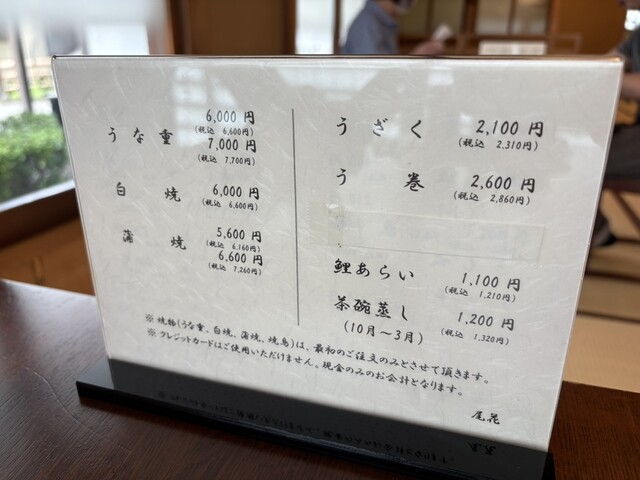 うな重
6,000 円
(税込 6,600円)
7,000 円
(税込 7,700円)
白焼
6,000 円
(税込 6,600円)
蒲焼
5,600 円
(税込 6,160円)
6,600 円
(税込 7,260円)
うざく 2,100 円
(税込 2,310円)
う巻 2,600 円
(税込 2,860円)
鯉あらい 1,100 円
(税込 1,210円)
茶碗蒸し 1,200 円
(10月〜3月) (税込 1,320円)
※焼物(うな重、白焼、蒲焼、焼鳥)は、最初のご注文のみとさせて頂きます。
※クレジットカードはご使用いただけません。現金のみのお会計となります。
尾花